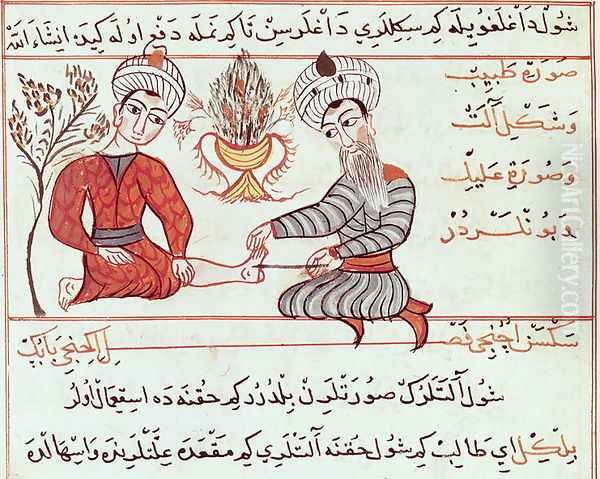 شول داغلغويله كم سكللري داغلرسن تا كم نمله دفع اوله كيده ان شاء الله
صورة طبيب
وشكل آلت
وصورة عليل
وبونلردر
سكسن اچنجي فصل اكنجي بابك
شول آلتلرك صورتلرن بلدرر كم حقنه ده استعمال اولر
بلكل اي طالب كم شول حقنه آلتلري كم مقعده علتلرينه واسهالده
NiceArtGallery.com